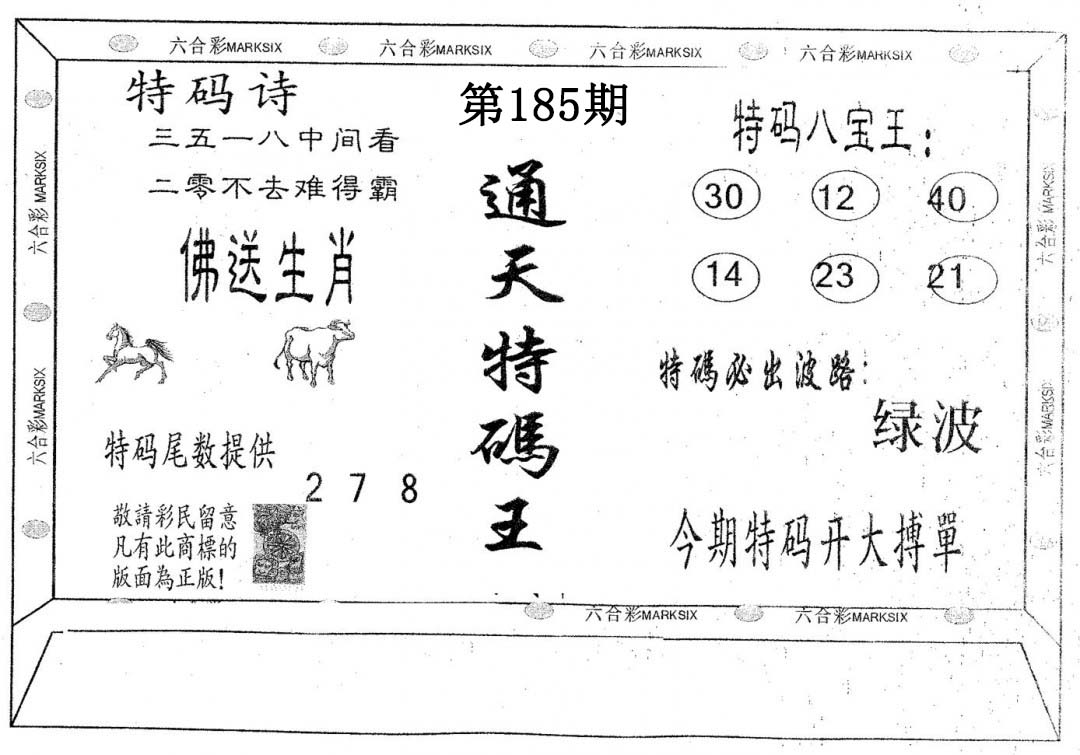 六合彩MARKSIX 六合彩MARKSIX 六合彩MARKSIX 六合彩MARKSIX
六合彩 MARKSIX
六合彩MARKSIX
特码诗
三五一八中间看
二零不去难得霸
佛送生肖
特码尾数提供
2 7 8
敬請彩民留意
凡有此商標的
版面為正版!
第185期
通天特碼王
特码八宝王:
30 12 40
14 23 21
特碼必出波路:
绿波
今期特码开大搏單
六合彩 MARKSIX
六合彩MARKSIX
六合彩MARKSIX 六合彩MARKSIX